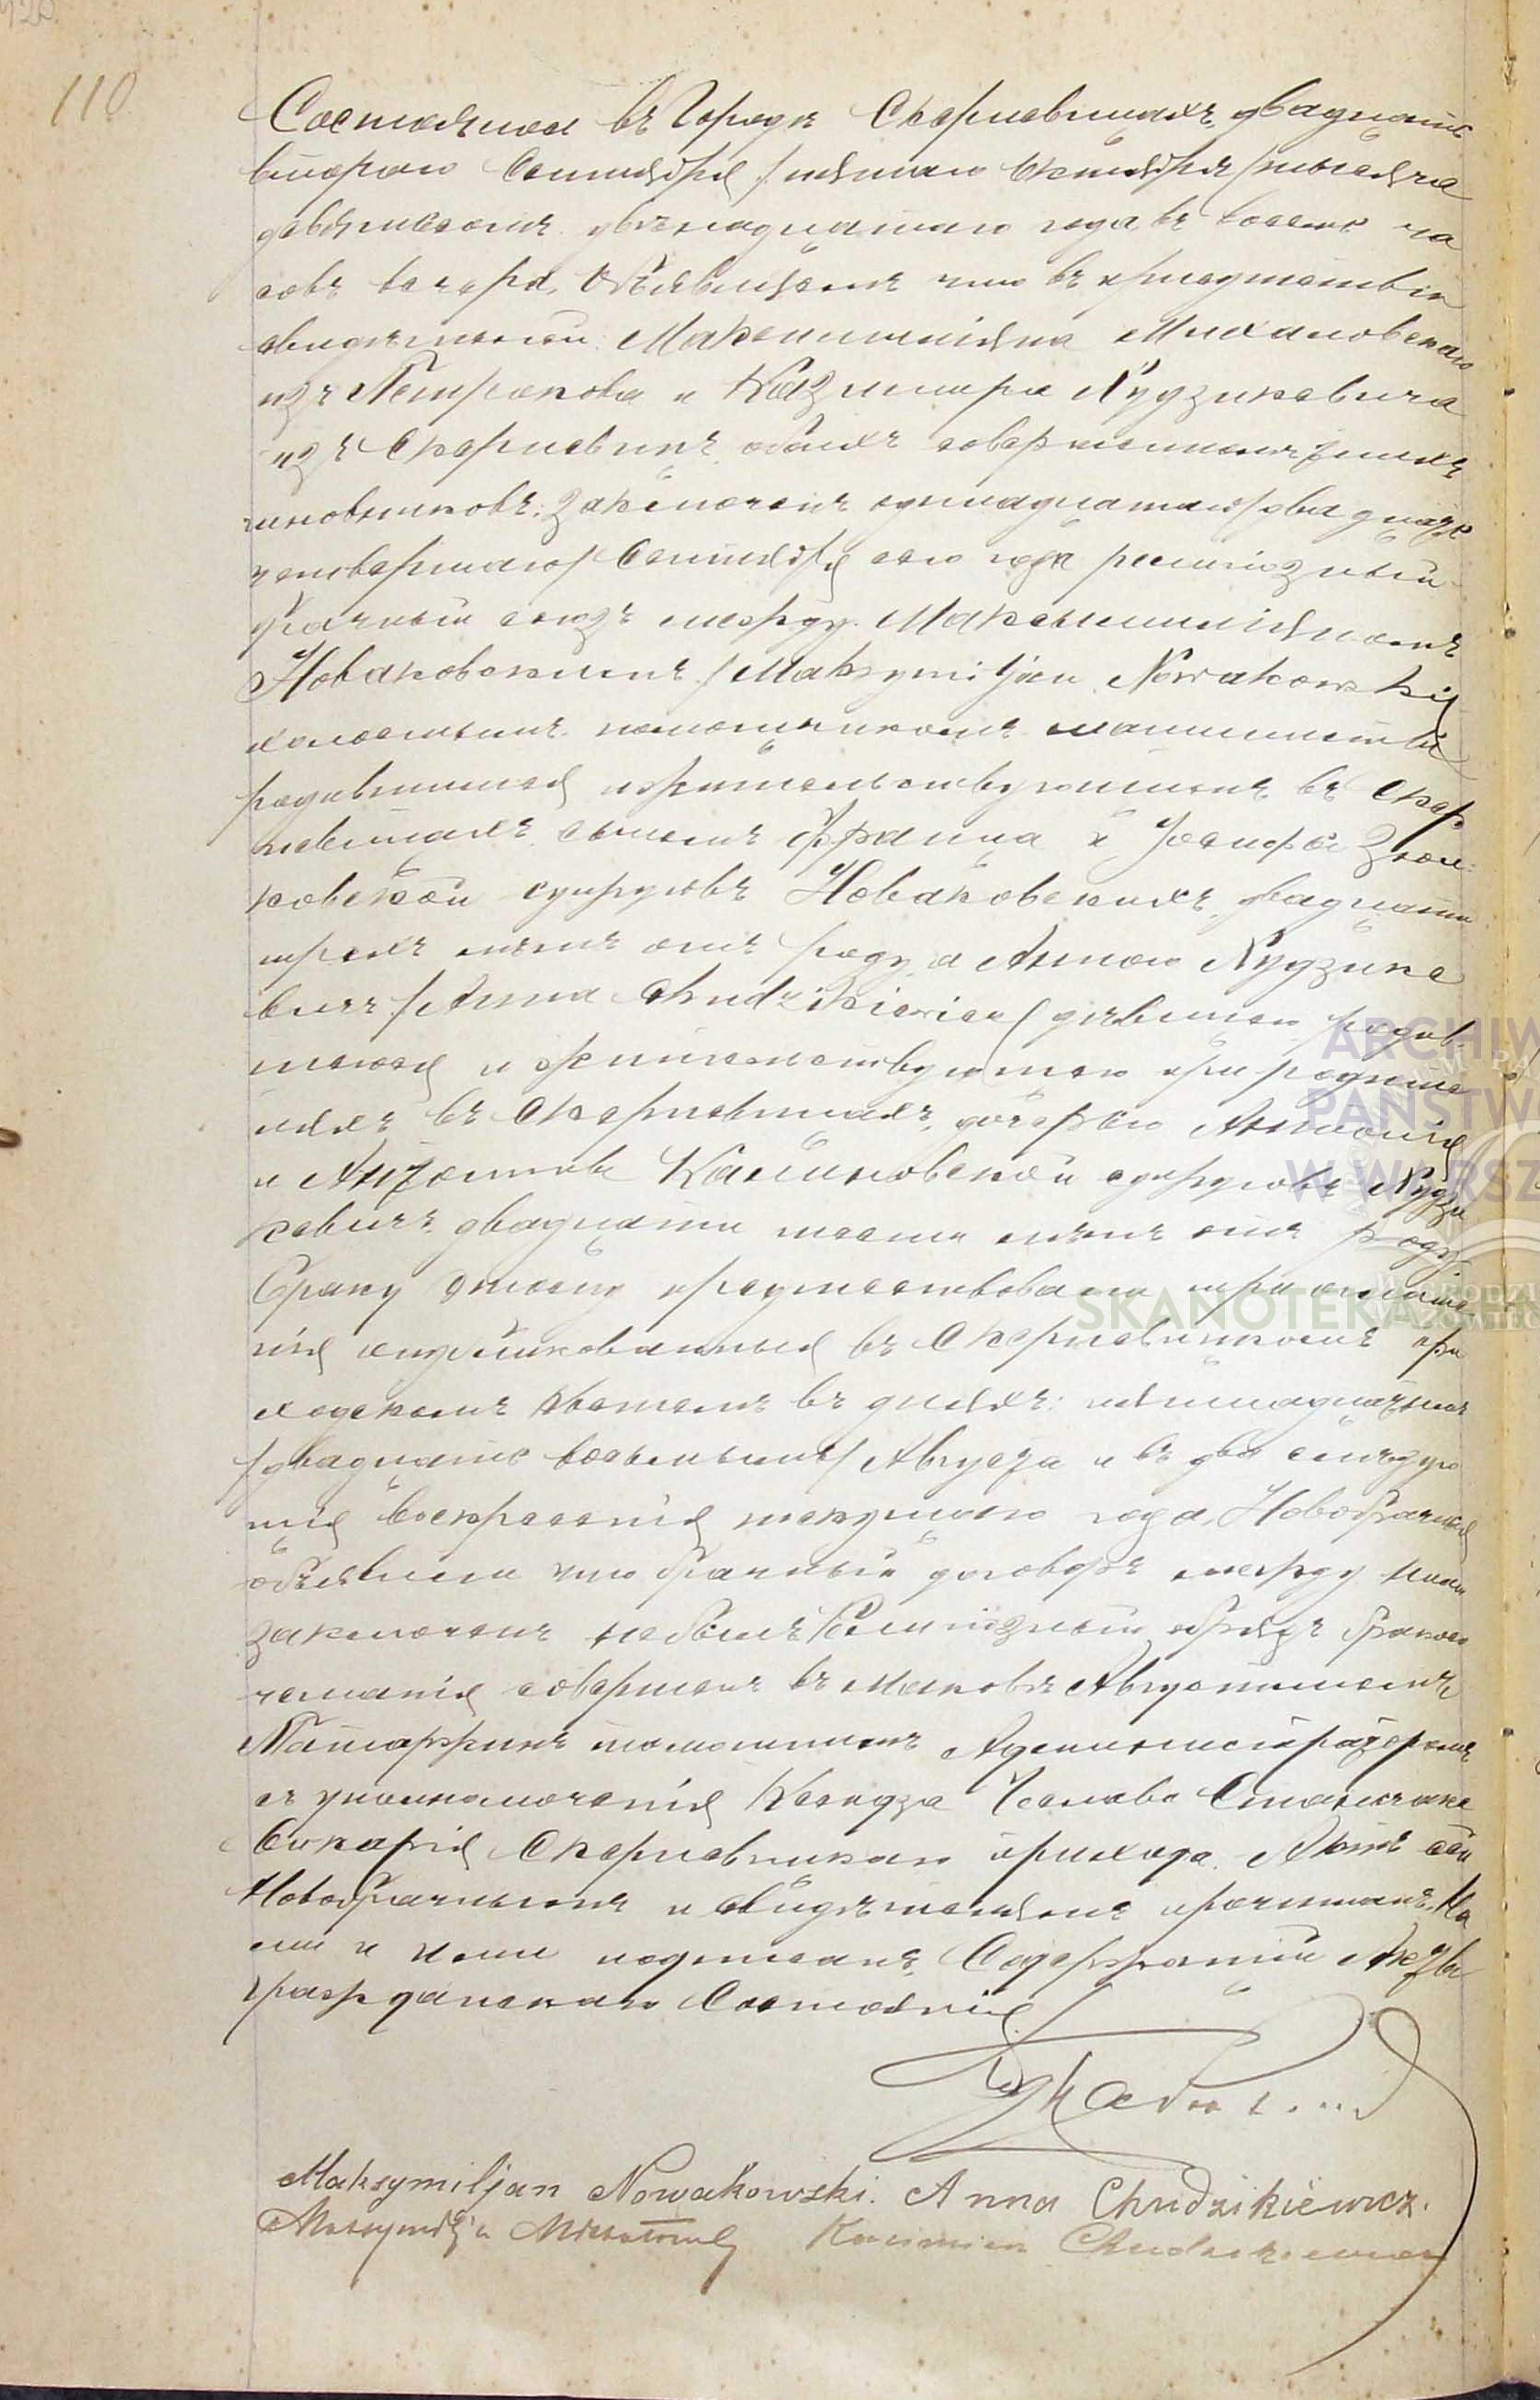 110
Состоялось въ Городѣ Скерневицахъ, двадцать
второго Сентября /пятаго Октября/ тысяча
девятьсотъ двѣнадцатаго года въ восемь ча
совъ вечера. Объявляемъ что въ присутствіи
свидѣтелей: Максимиліяна Михаловскаго
изъ Петрокова и Казимира Худзикевича
изъ Скерневицъ, обоихъ совершеннолѣтнихъ
чиновниковъ, заключенъ одинадцатаго /двадцать
четвертаго/ Сентября сего года религіозный
брачный союзъ между Максимиліяномъ
Новаковскимъ /Maksymiljan Nowakowski/
холостымъ помощникомъ машиниста
родившимся и жительствующимъ въ Скер
невицахъ, сыномъ Франца и Іосифы
ковской супруговъ Новаковскихъ, двадцати
трехъ лѣтъ отъ роду, а Анною Худзике
вичъ /Anna Chudzikiewicz/ дѣвицею, родив
шеюся и жительствующею при родите
ляхъ въ Скерневицахъ, дочерью Антонія
и Антонины Калиновской супруговъ Худзи
кевичъ, двадцати шести лѣтъ отъ роду.
Браку этому предшествовали три оглаше
нія опубликованныя въ Скерневицкомъ при
ходскомъ костелѣ въ дняхъ: пятнадцатомъ
/двадцать восьмымъ/ Августа и въ два слѣдую
щія Воскресенія текущаго года. Новобрачные
объявили что брачный договоръ между ними
заключенъ не былъ. Религіозный обрядъ бракосо
четанія совершенъ въ
съ уполномочія Ксендза
Викарія Скерневицкаго прихода. Актъ сей
Новобрачнымъ и свидѣтелямъ прочитанъ, На
ми и ними подписанъ. Содержащій Акты
гражданскаго Состоянія
Maksymiljan Nowakowski. Anna Chudzikiewicz.
Kazimierz Chudzikiewicz
ARCHIW
PAŃSTW
W WARSZ
SKANOTEKA